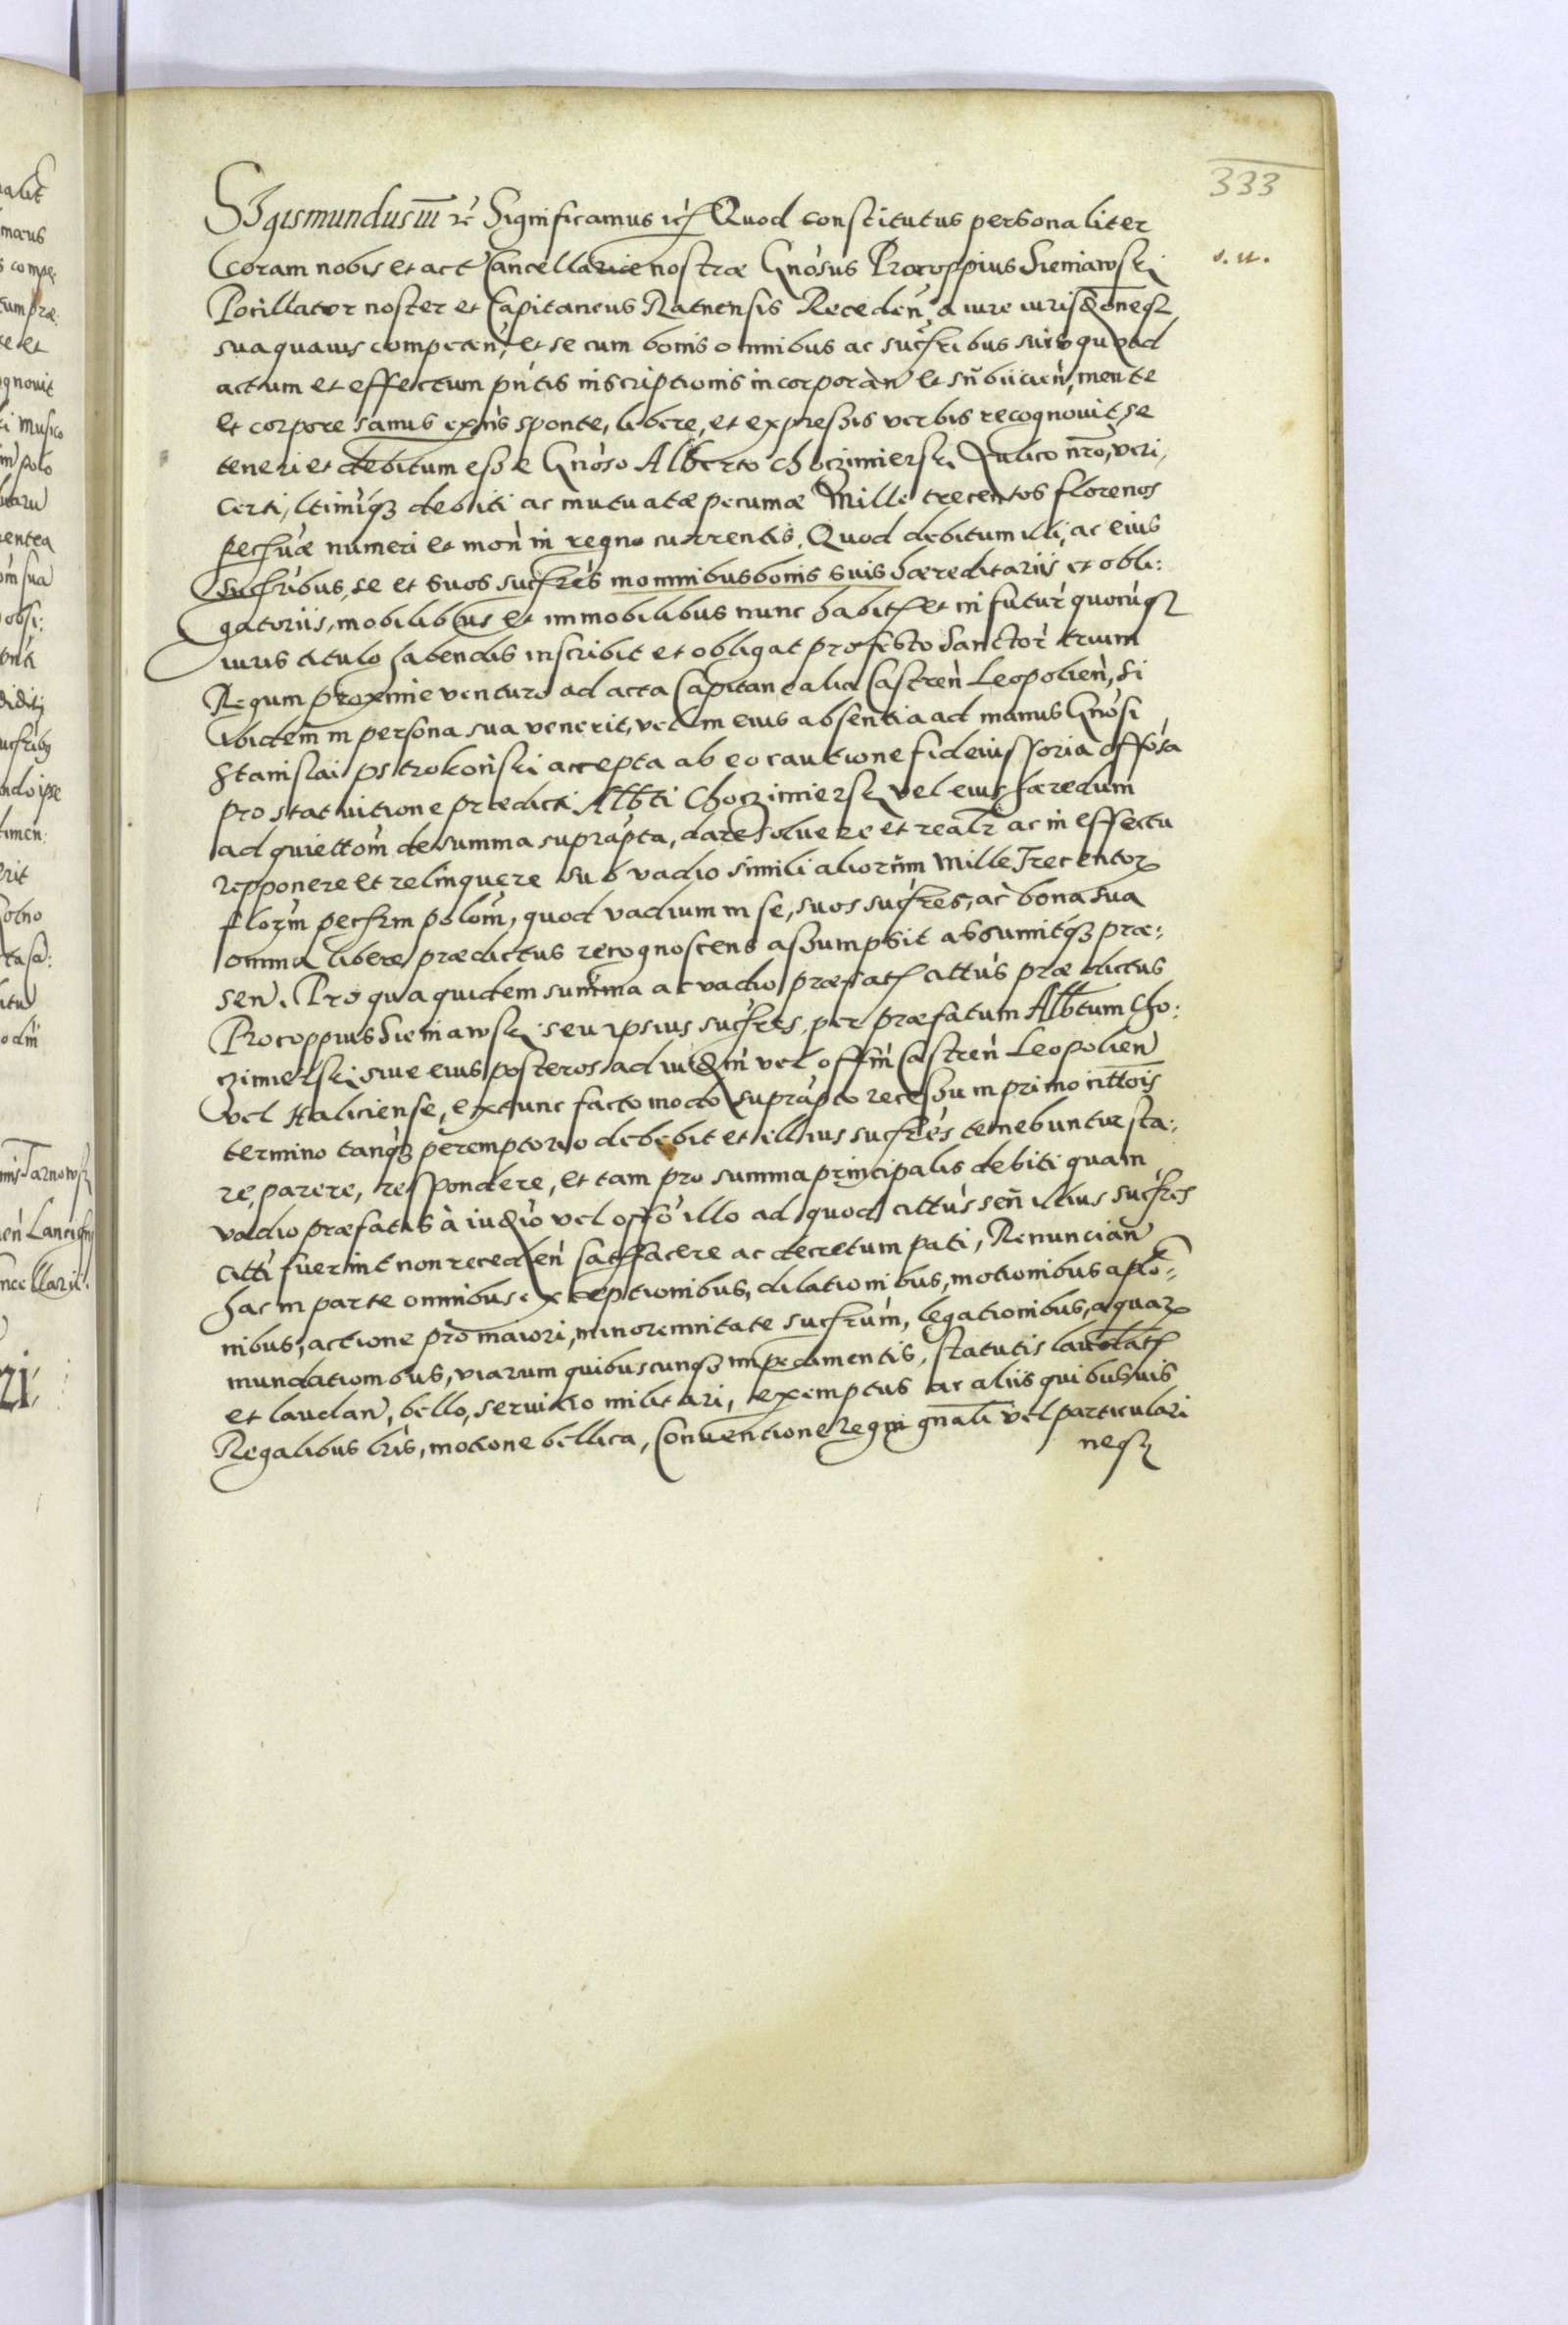 333
Sigismundus III etc. Significamus etc. Quod constitutus personaliter
coram nobis et act Cancellariae nostrae Gnosus Procoppius Sieniawski
s. u.
Pocillator noster et Capitaneus Ratnensis Receden a iure iurisdoneq
sua quavis competen, et se cum bonis omnibus ac sucribus suis quoad
actum et effectum pntis inscriptionis incorporan et subiicien, mente
et corpore sanus exns sponte, libere, et expressis verbis recognovit, se
teneri et debitum esse Gnoso Alberto Choczimierski Aulico nro, veri,
certi, ltimiq debiti ac mutuatae pecuniae Mille trecentos florenos
pecuae numeri et mon in regno currentis. Quod debitum illi, ac eius
sucribus, se et suos sucres in omnibus bonis suis haereditariis et obli:
gatoriis, mobilibus et immobilibus nunc habit et in futur quocuq
iuris titulo habendis inscribit et obligat pro festo Sanctor trium
Regum proxime venturo ad acta Capitanealia Castren Leopolien, si
ibidem in persona sua venerit, vel in eius absentia ad manus Gnosi
Stanislai Pstrokonski accepta ab eo cautione fideiussoria offosa
pro statuitione praedicti Albti Choczimierski vel eius haeredum
ad quiettom de summa suprapta, dare solvere et realr ac in effectu
repponere et relinquere sub vadio simili aliorum Mille Trecentor
florm pecrm polom, quod vadium in se, suos sucres, ac bona sua
omnia libere praedictus recognoscens assumpsit assumitq prae:
sen. Pro qua quidem summa ac vadio praefat cittus praedictus
Procoppius Sieniawski seu ipsius sucres, per praefatum Albtum Cho:
czimierski sive eius posteros ad iudm vel offm Castren Leopolien
vel Haliciense, extunc facto modo suprapto recessu in primo cittois
termino tanq peremptorio debebit et illius sucres tenebuntur sta:
re, parere, respondere, et tam pro summa principalis debiti quam
vadio praefatis à iudio vel offo illo ad quod cittus seu illius sucres
citti fuerint non receden satffacere ac decretum pati, Renuncian
hac in parte omnibus exceptionibus, dilationibus, motionibus aplo:
nibus, actione pro maiori, minorennitate sucrum, legationibus, aquar
inundationibus, viarum quibuscunq impedimentis, statutis laudat
et laudan, bello, servitio militari, exemptus ac aliis quibusvis
Regalibus lris, motione bellica, Conventione Regni gnali vel particulari
neq